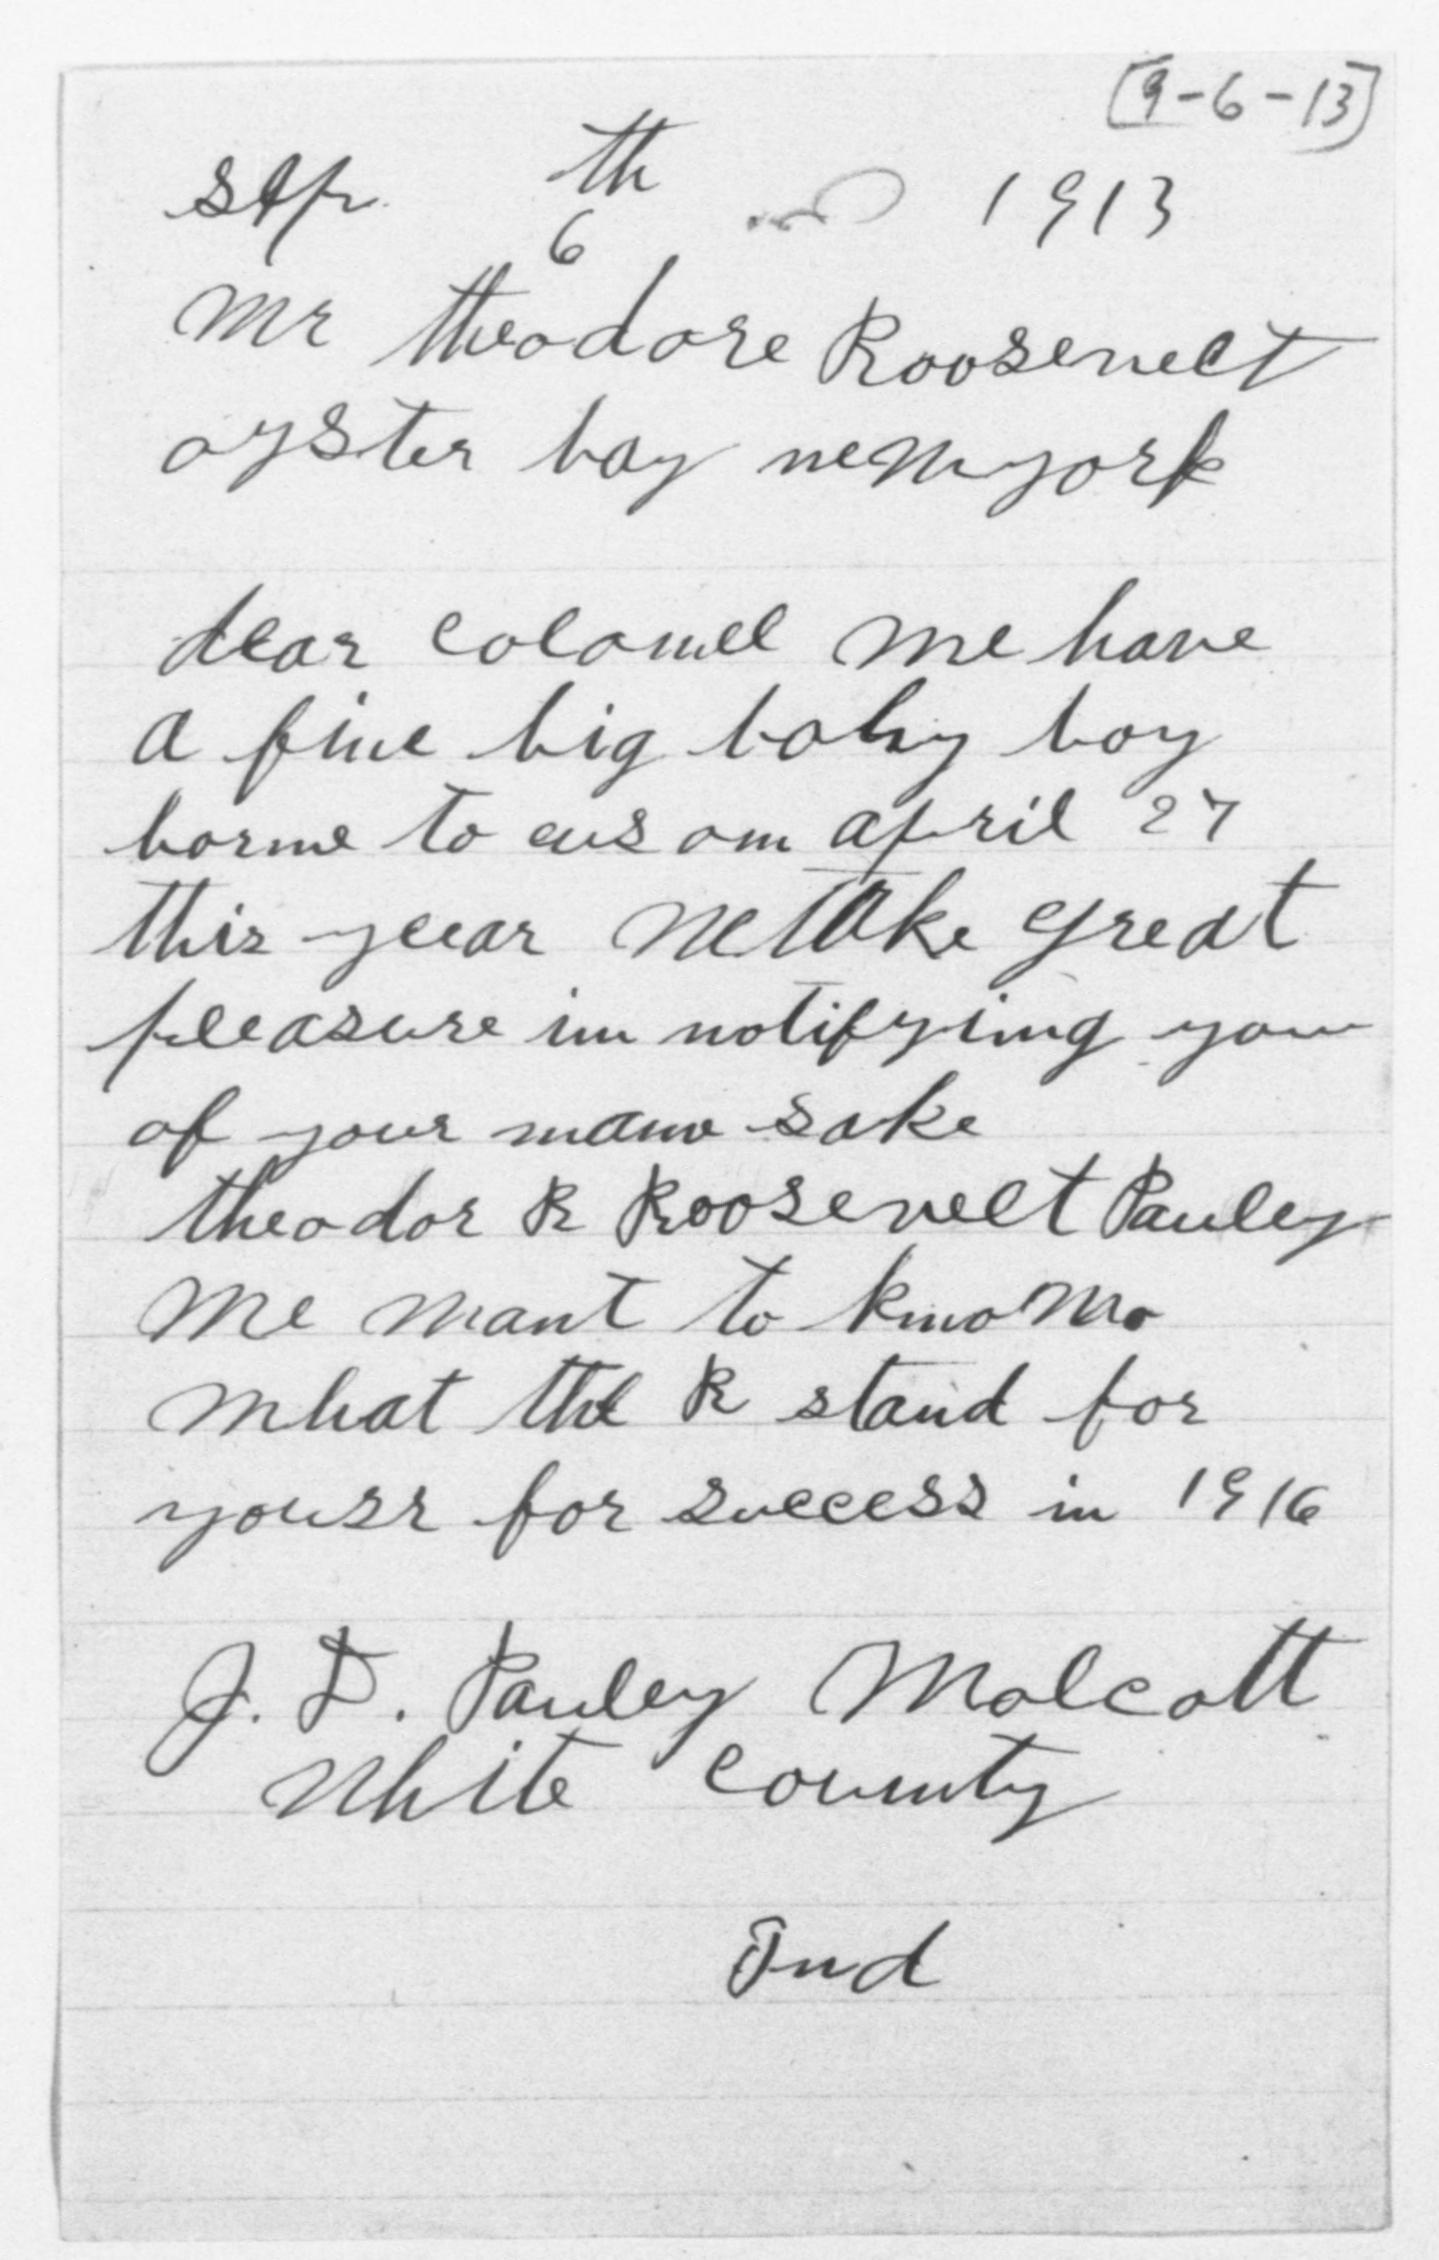 [9-6-13]
Sep. 6th 1913
Mr theodore Roosevelt
oyster bay newyork
dear Colonel we have
a fine big baby boy
borne to us on april 27
this year we take great
pleasure in notifying you
of your name sake
theodor R Roosevelt Pauley
we want to know
what the R stand for
yousr for success in 1916
J. D. Pauley Wolcott
White County
Ind